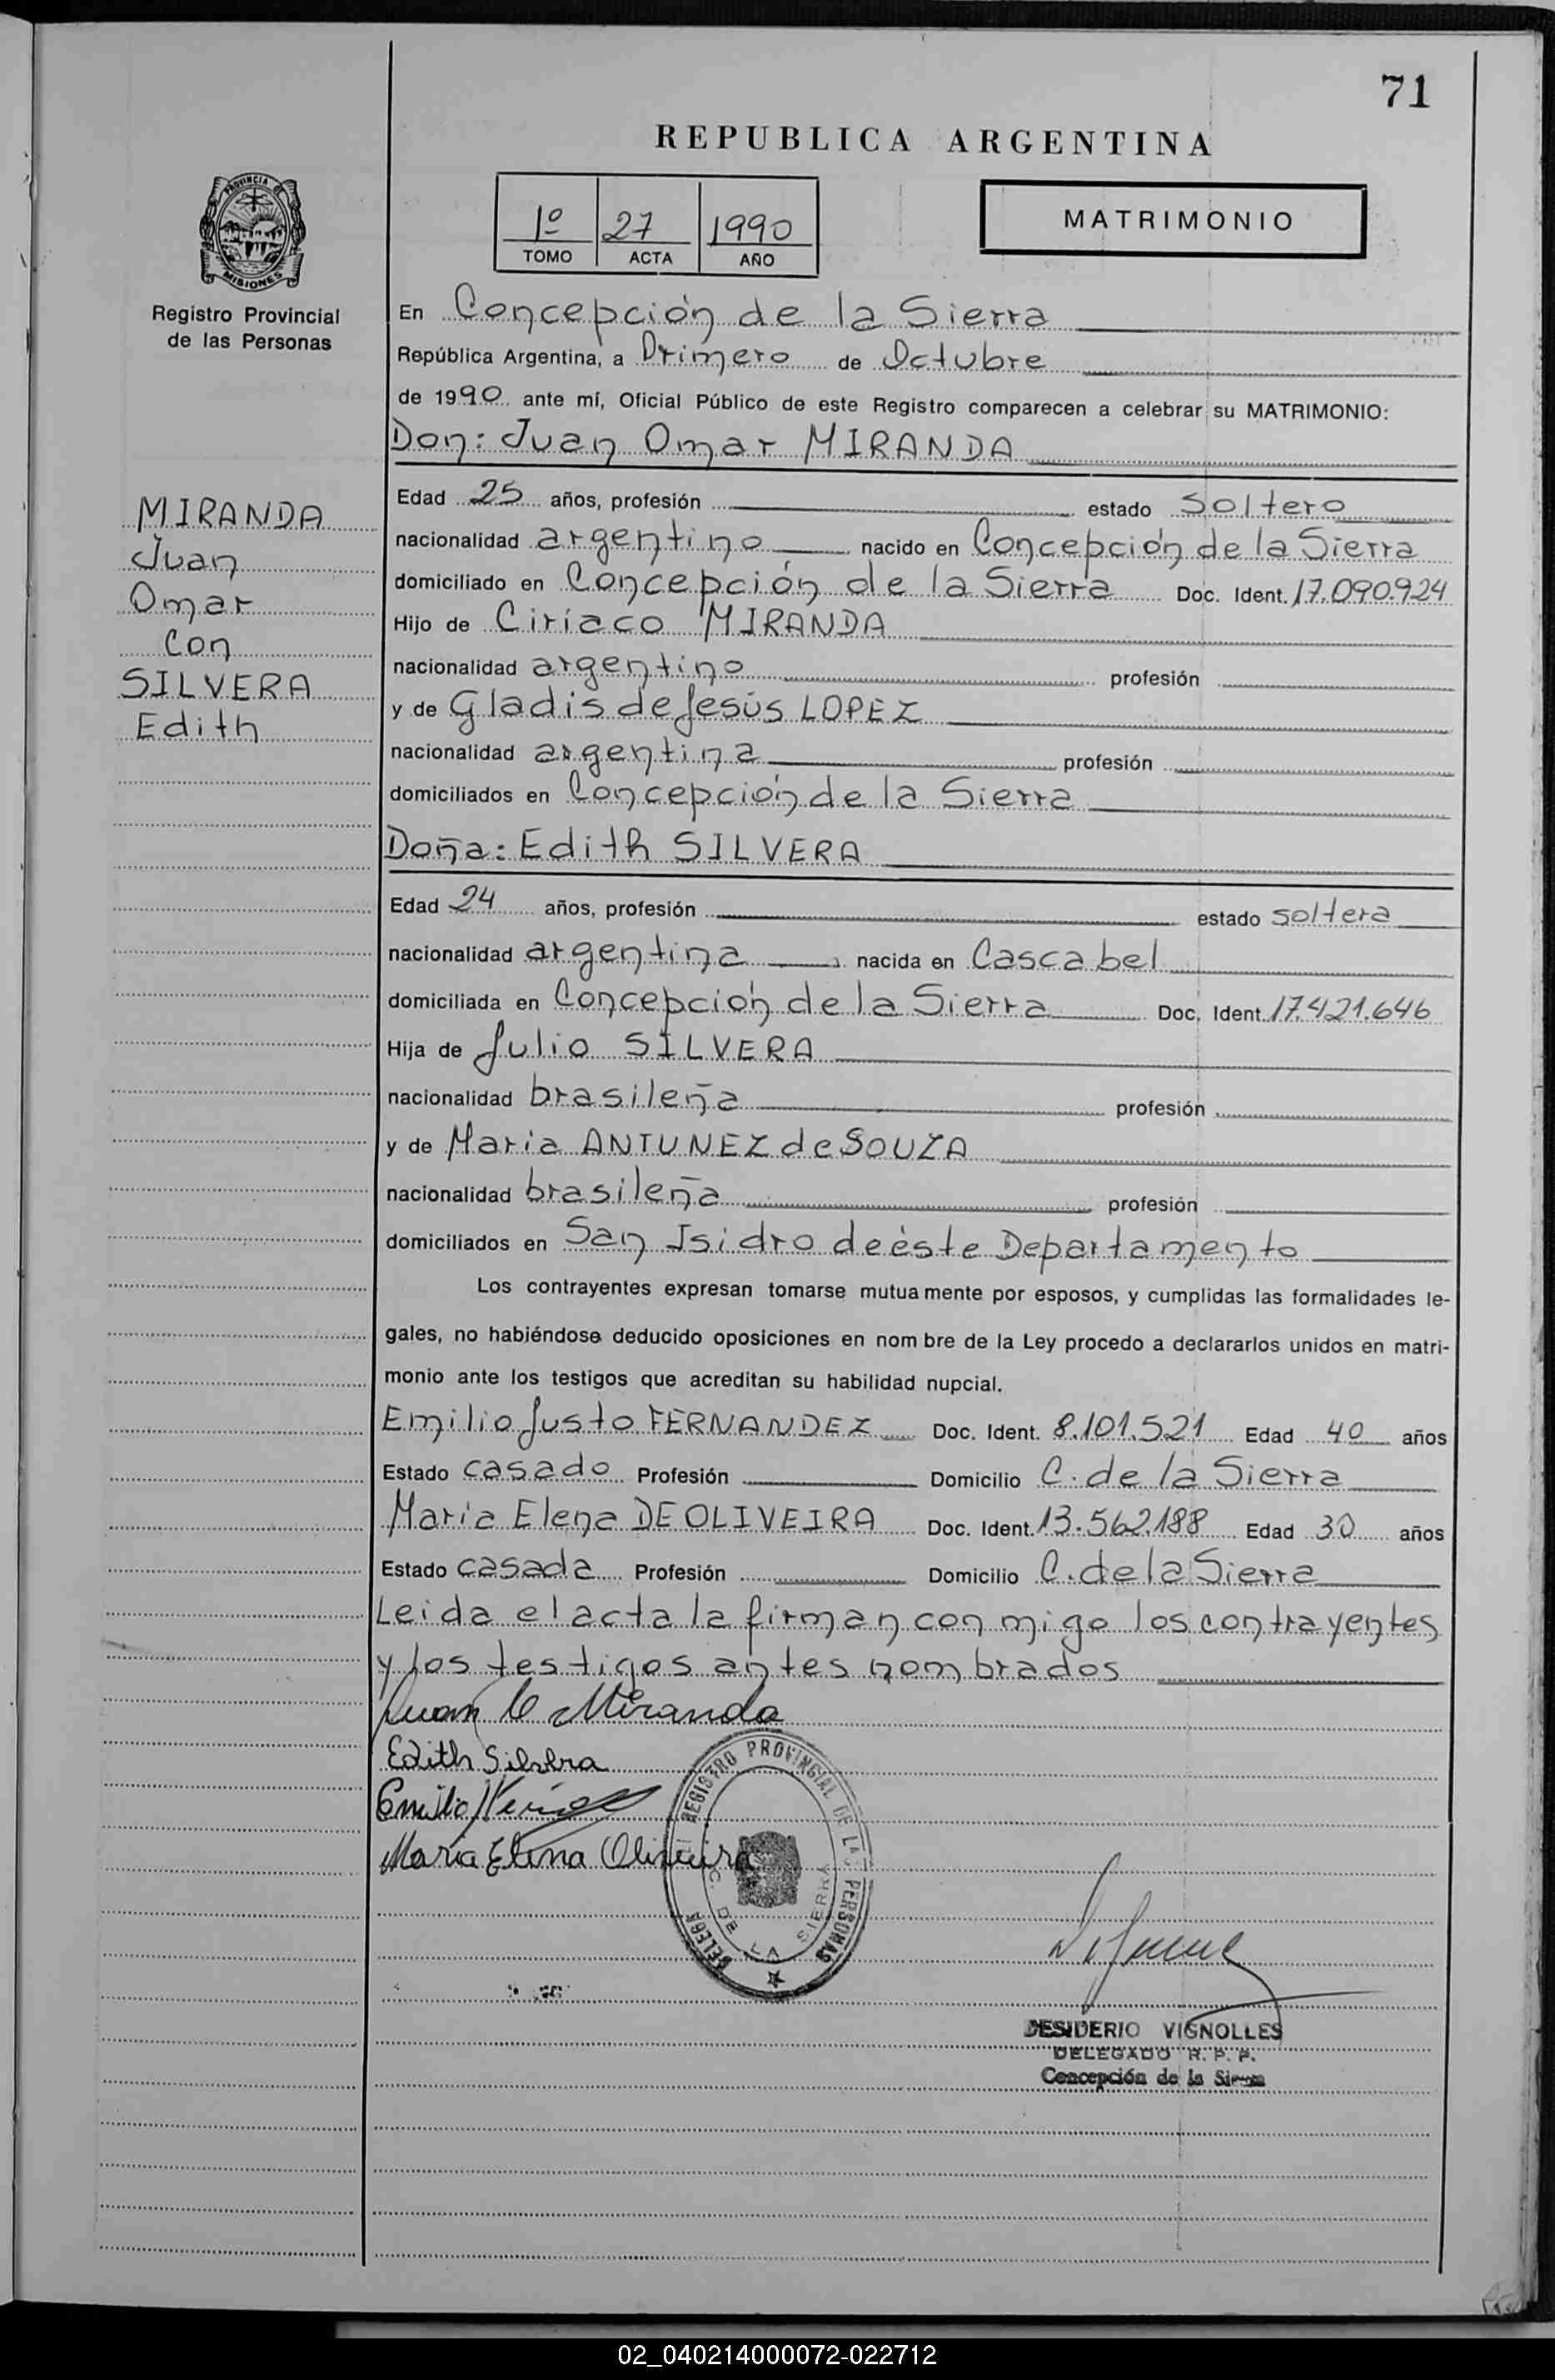 71
REPUBLICA ARGENTINA
1º 27 1990
TOMO ACTA AÑO
MATRIMONIO
PROVINCIA DE
MISIONES
Registro Provincial
de las Personas
En Concepción de la Sierra
República Argentina, a Primero de Octubre
de 1990 ante mí, Oficial Público de este Registro comparecen a celebrar su MATRIMONIO:
Don: Juan Omar MIRANDA
MIRANDA
Juan
Omar
Con
SILVERA
Edith
Edad 25 años, profesión estado Soltero
nacionalidad argentino nacido en Concepción de la Sierra
domiciliado en Concepción de la Sierra Doc. Ident. 17.090.924
Hijo de Ciríaco MIRANDA
nacionalidad argentino profesión
y de Gladis de Jesús LOPEZ
nacionalidad argentina profesión
domiciliados en Concepción de la Sierra
Doña: Edith SILVERA
Edad 24 años, profesión estado soltera
nacionalidad argentina nacida en Cascabel
domiciliada en Concepción de la Sierra Doc. Ident. 17.421.646
Hija de Julio SILVERA
nacionalidad brasileña profesión
y de Maria ANTUNEZ de SOUZA
nacionalidad brasileña profesión
domiciliados en San Isidro de éste Departamento
Los contrayentes expresan tomarse mutuamente por esposos, y cumplidas las formalidades le-
gales, no habiéndose deducido oposiciones en nombre de la Ley procedo a declararlos unidos en matri-
monio ante los testigos que acreditan su habilidad nupcial.
Emilio Justo FERNANDEZ Doc. Ident. 8.101.521 Edad 40 años
Estado casado Profesión Domicilio C. de la Sierra
Maria Elena DE OLIVEIRA Doc. Ident. 13.562.188 Edad 30 años
Estado casada Profesión Domicilio C. de la Sierra
Leida el acta la firman con migo los contrayentes
y los testigos antes nombrados
Juan O Miranda
Edith Silvera
Emilio
Maria Elena Oliveira
REGISTRO PROVINCIAL DE LAS PERSONAS
DELEGA
C. DE LA SIERRA
DESIDERIO VIGNOLLES
DELEGADO R. P. P.
Concepción de la Sierra
02_040214000072-022712